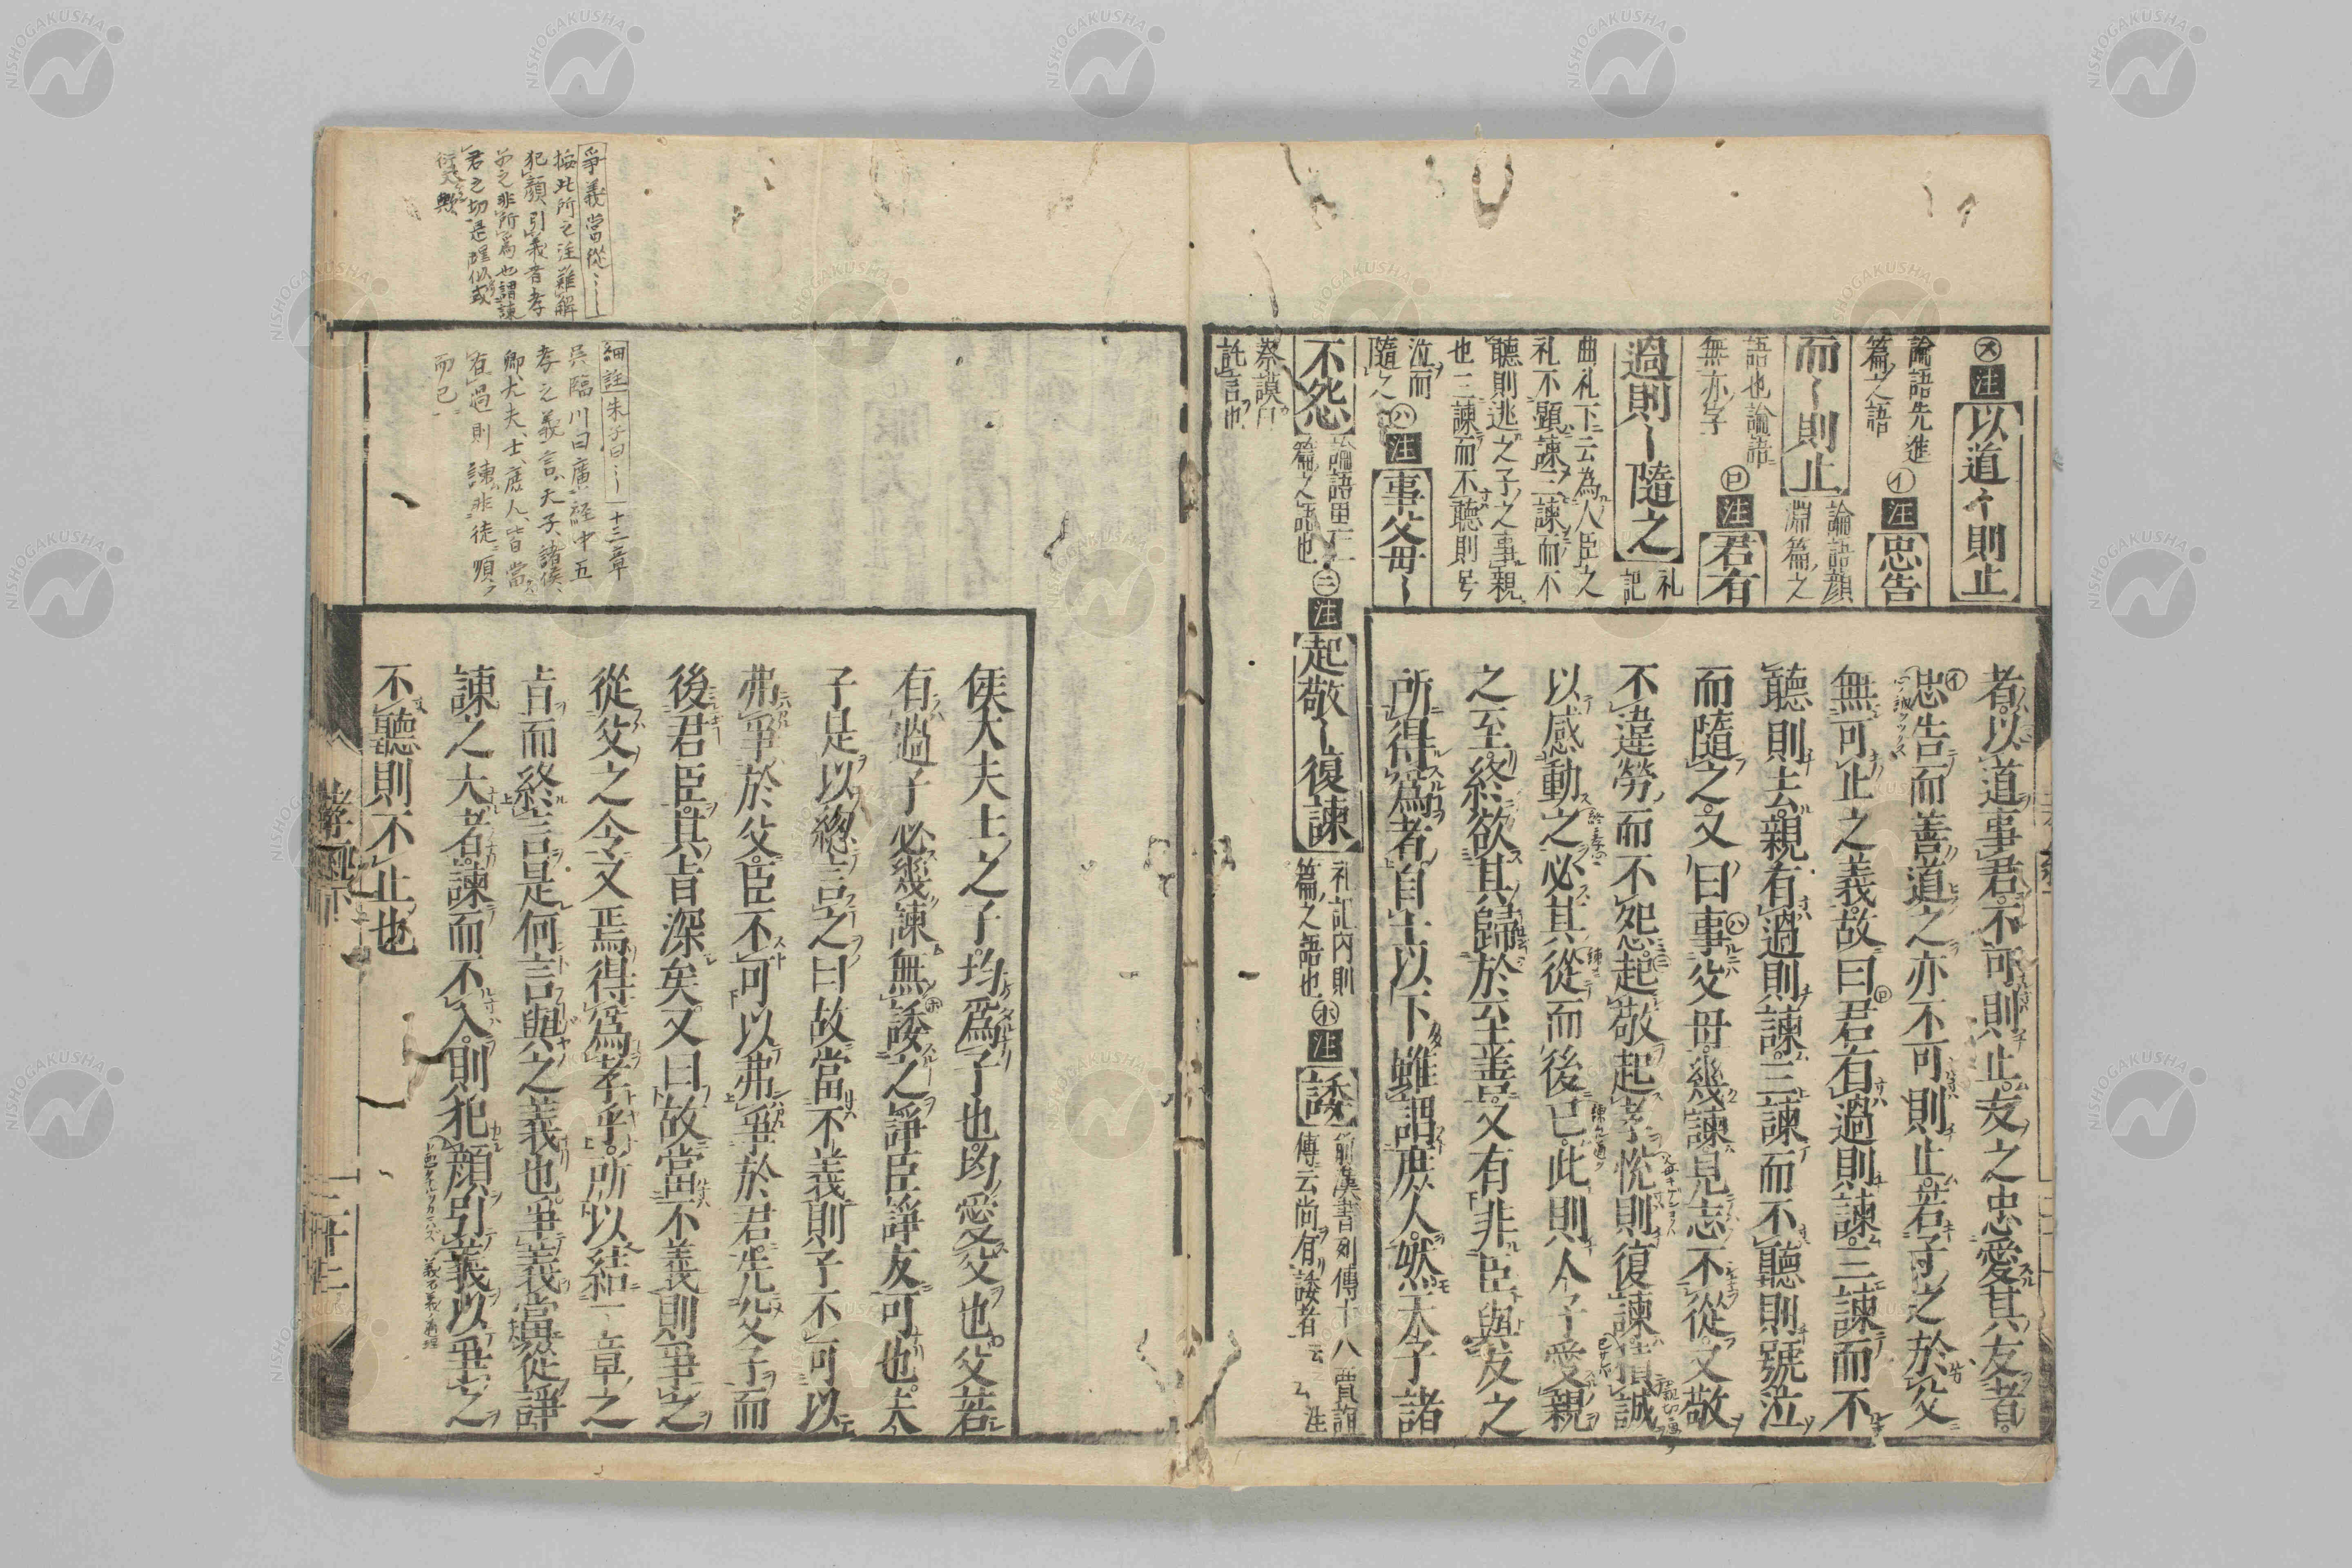 注 以道〻則止
論語先進
篇之語
注 忠告
而〻則止
論語顔
淵篇之
語也論語
無亦字
注 君有
過則〻隨之
礼
記
曲礼下云為人臣之
礼不顕諌三諌而不
聽則逃之子之事親
也三諌而不聽則号
泣而
隨之
注 事父母〻
不怨
論語里仁
篇之語也
注 起敬〻復諫
礼記内則
篇之語也
注 諉
前漢書列傳十八賈誼
傳云尚有諉者云々注
蔡謨曰
託言也
者以道事君不可則止友之忠愛其友者
忠告而善道之亦不可則止若子之於父
無可止之義故曰君有過則諫三諫而不
聽則去親有過則諫三諫而不聽則號泣
而隨之又曰事父母幾諫見志不從又敬
不違勞而不怨起敬起孝悅則復諫積誠
以感動之必其從而後已此則人子愛親
之至終欲其歸於至善又有非臣與友之
所得爲者自士以下雖謂庶人然天子諸
侯大夫士之子均爲子也均愛父也父若
有過子必幾諫無諉之諍臣諍友可也夫
子是以總言之曰故當不義則子不可以
弗爭於父臣不可以弗爭於君先父子而
後君臣其旨深矣又曰故當不義則爭之
從父之令又焉得爲孝乎所以結一章之
旨而終言是何言與之義也爭義當從諍
諫之大者諫而不入則犯顔引義以爭之
不聽則不止也
爭義當從〻
按此所之注難解
犯顔引義者孝
子之非所爲也謂諫
君之切
衍文歟
細註 朱子曰〻 十三章
呉臨川曰廣経中五
孝之義言天子諸侯
卿大夫士庶人皆當
有過則諫非徒順
而已
二十二
NISHOGAKUSHA